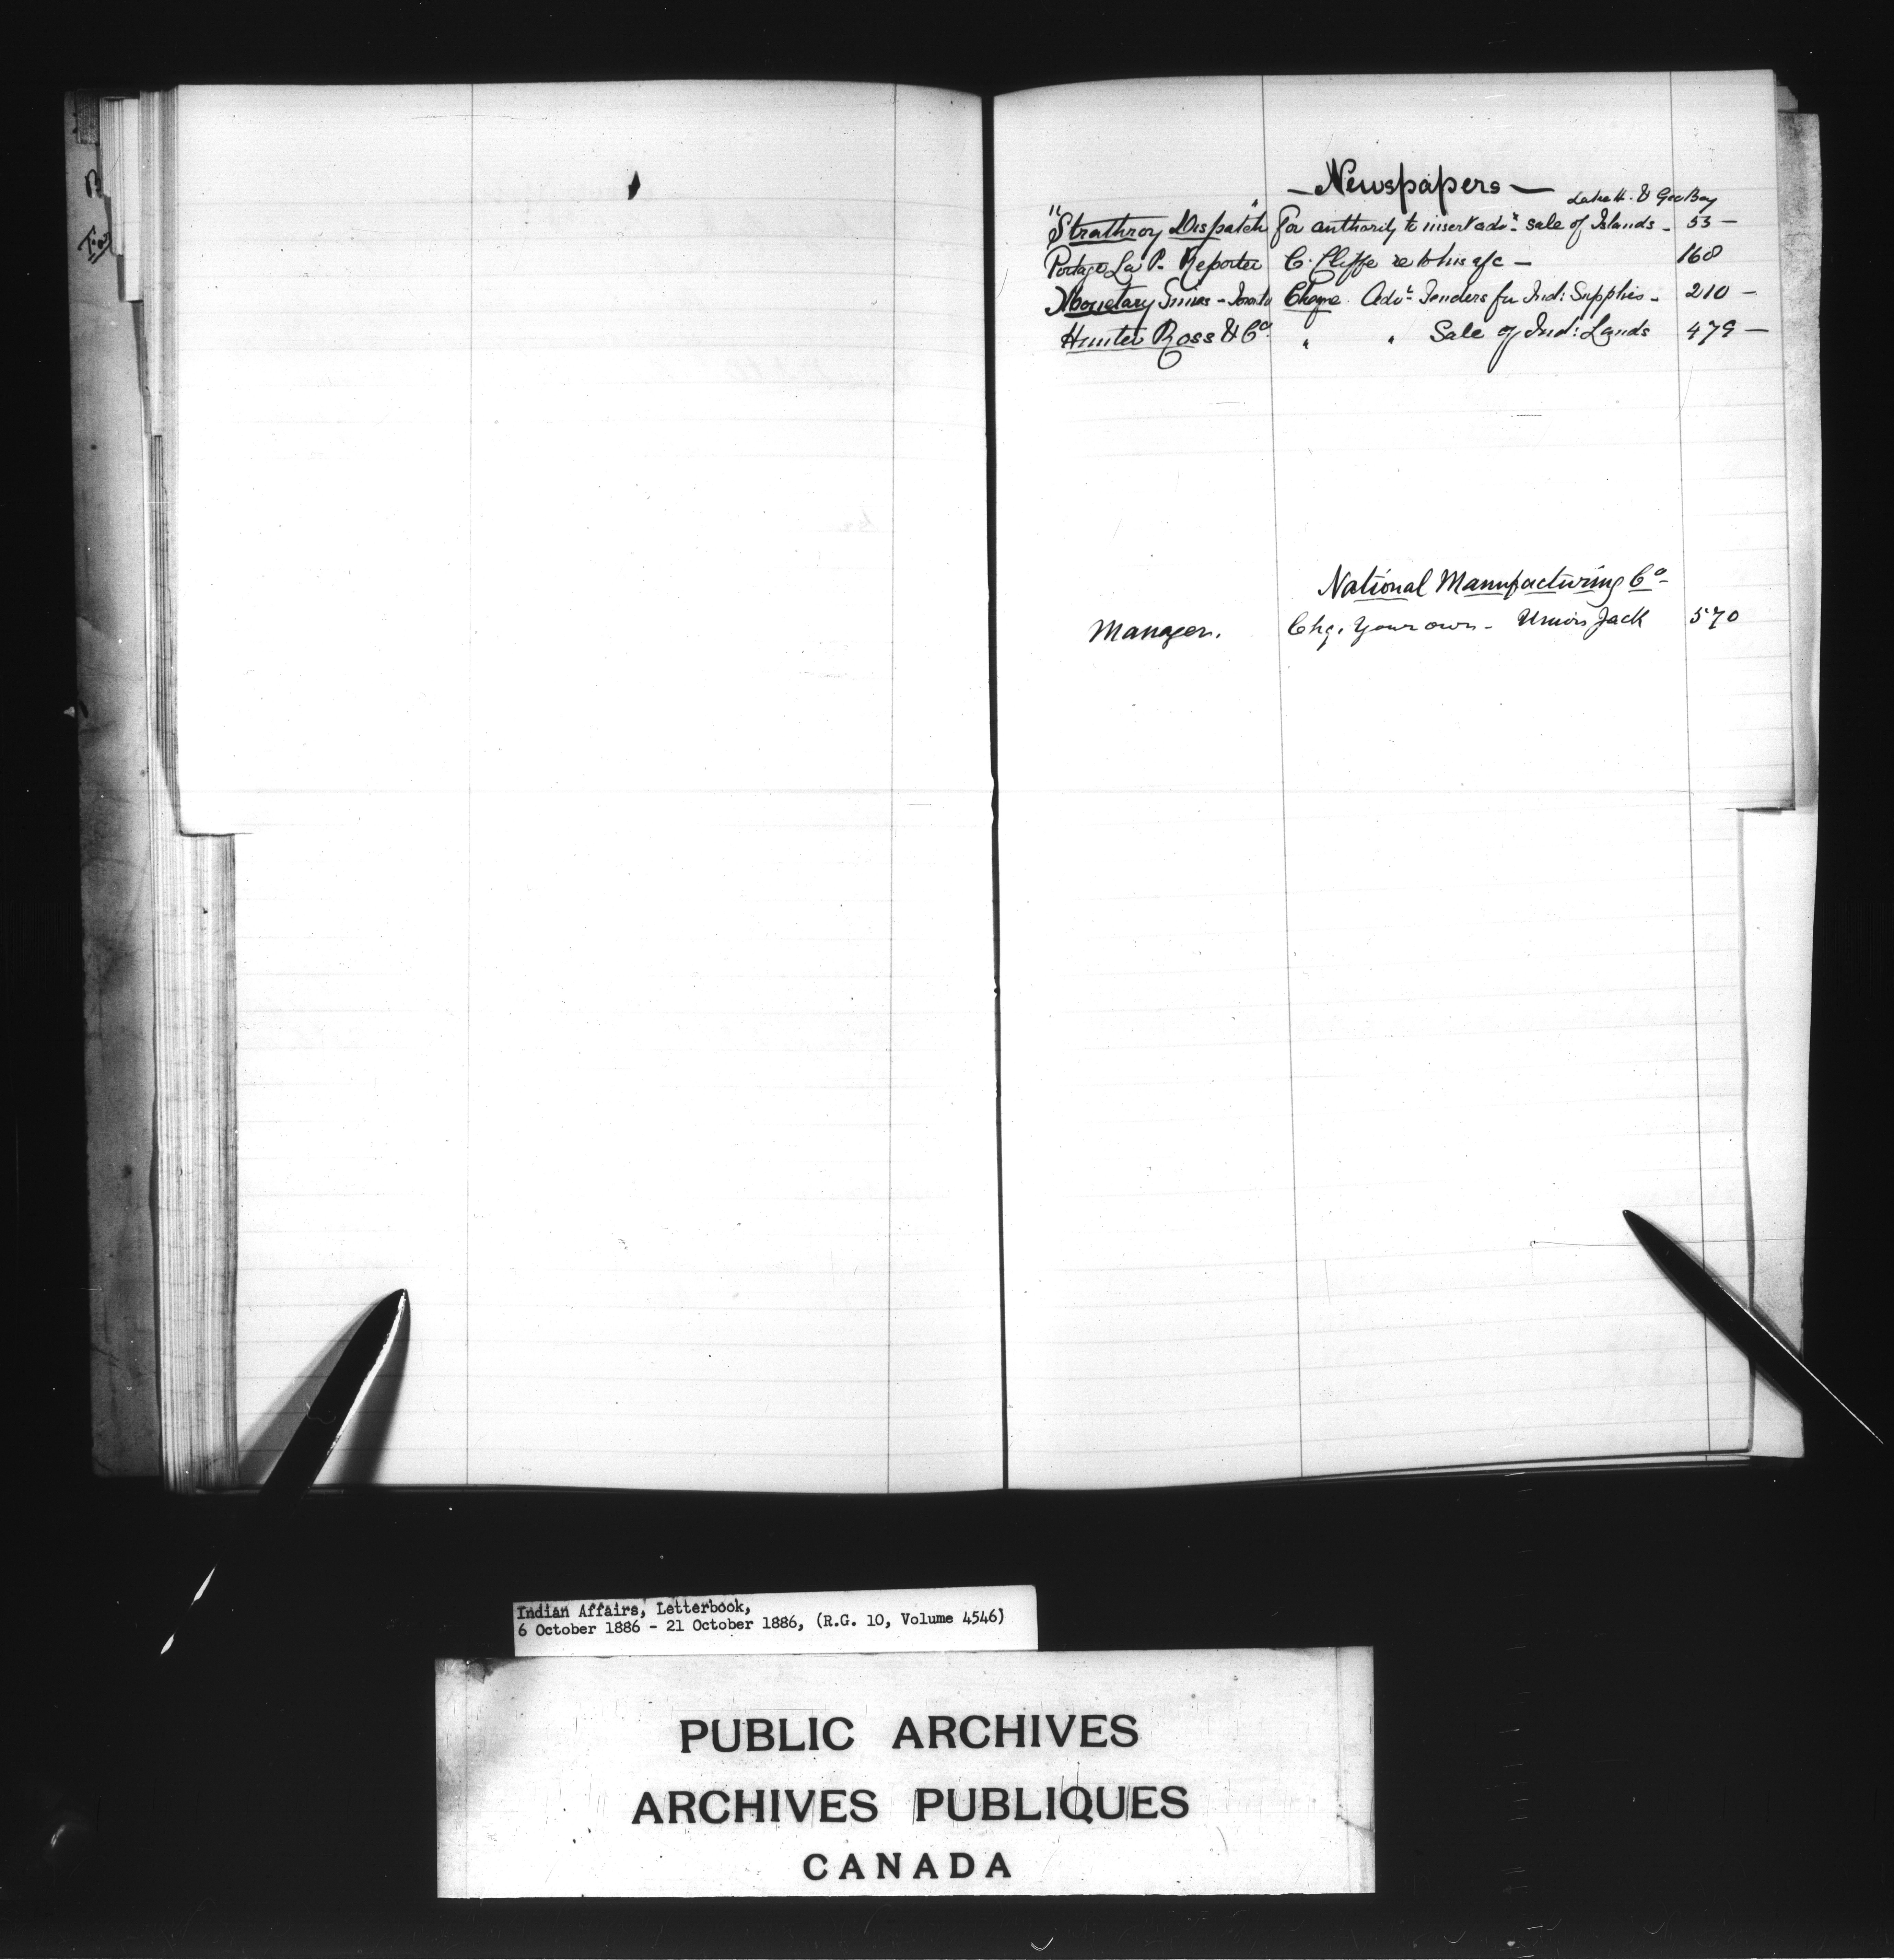 — Newspapers —
Lake H. & Geo Bay
"Strathroy Dispatch" For authority to insert advt sale of Islands - 53 -
Portage La P. Reporter C. Cliffe re to his a/c - 160
Monetary Times - Toronto Cheque Advt Tenders for Ind: Supplies - 210 -
Hunter Ross & Co " " Sale of Ind: Lands 479 -
National Manufacturing Co -
Manager. Chq. Your own - Union Jack 570
Indian Affairs, Letterbook,
6 October 1886 - 21 October 1886, (R.G. 10, Volume 4546)
PUBLIC ARCHIVES
ARCHIVES PUBLIQUES
CANADA